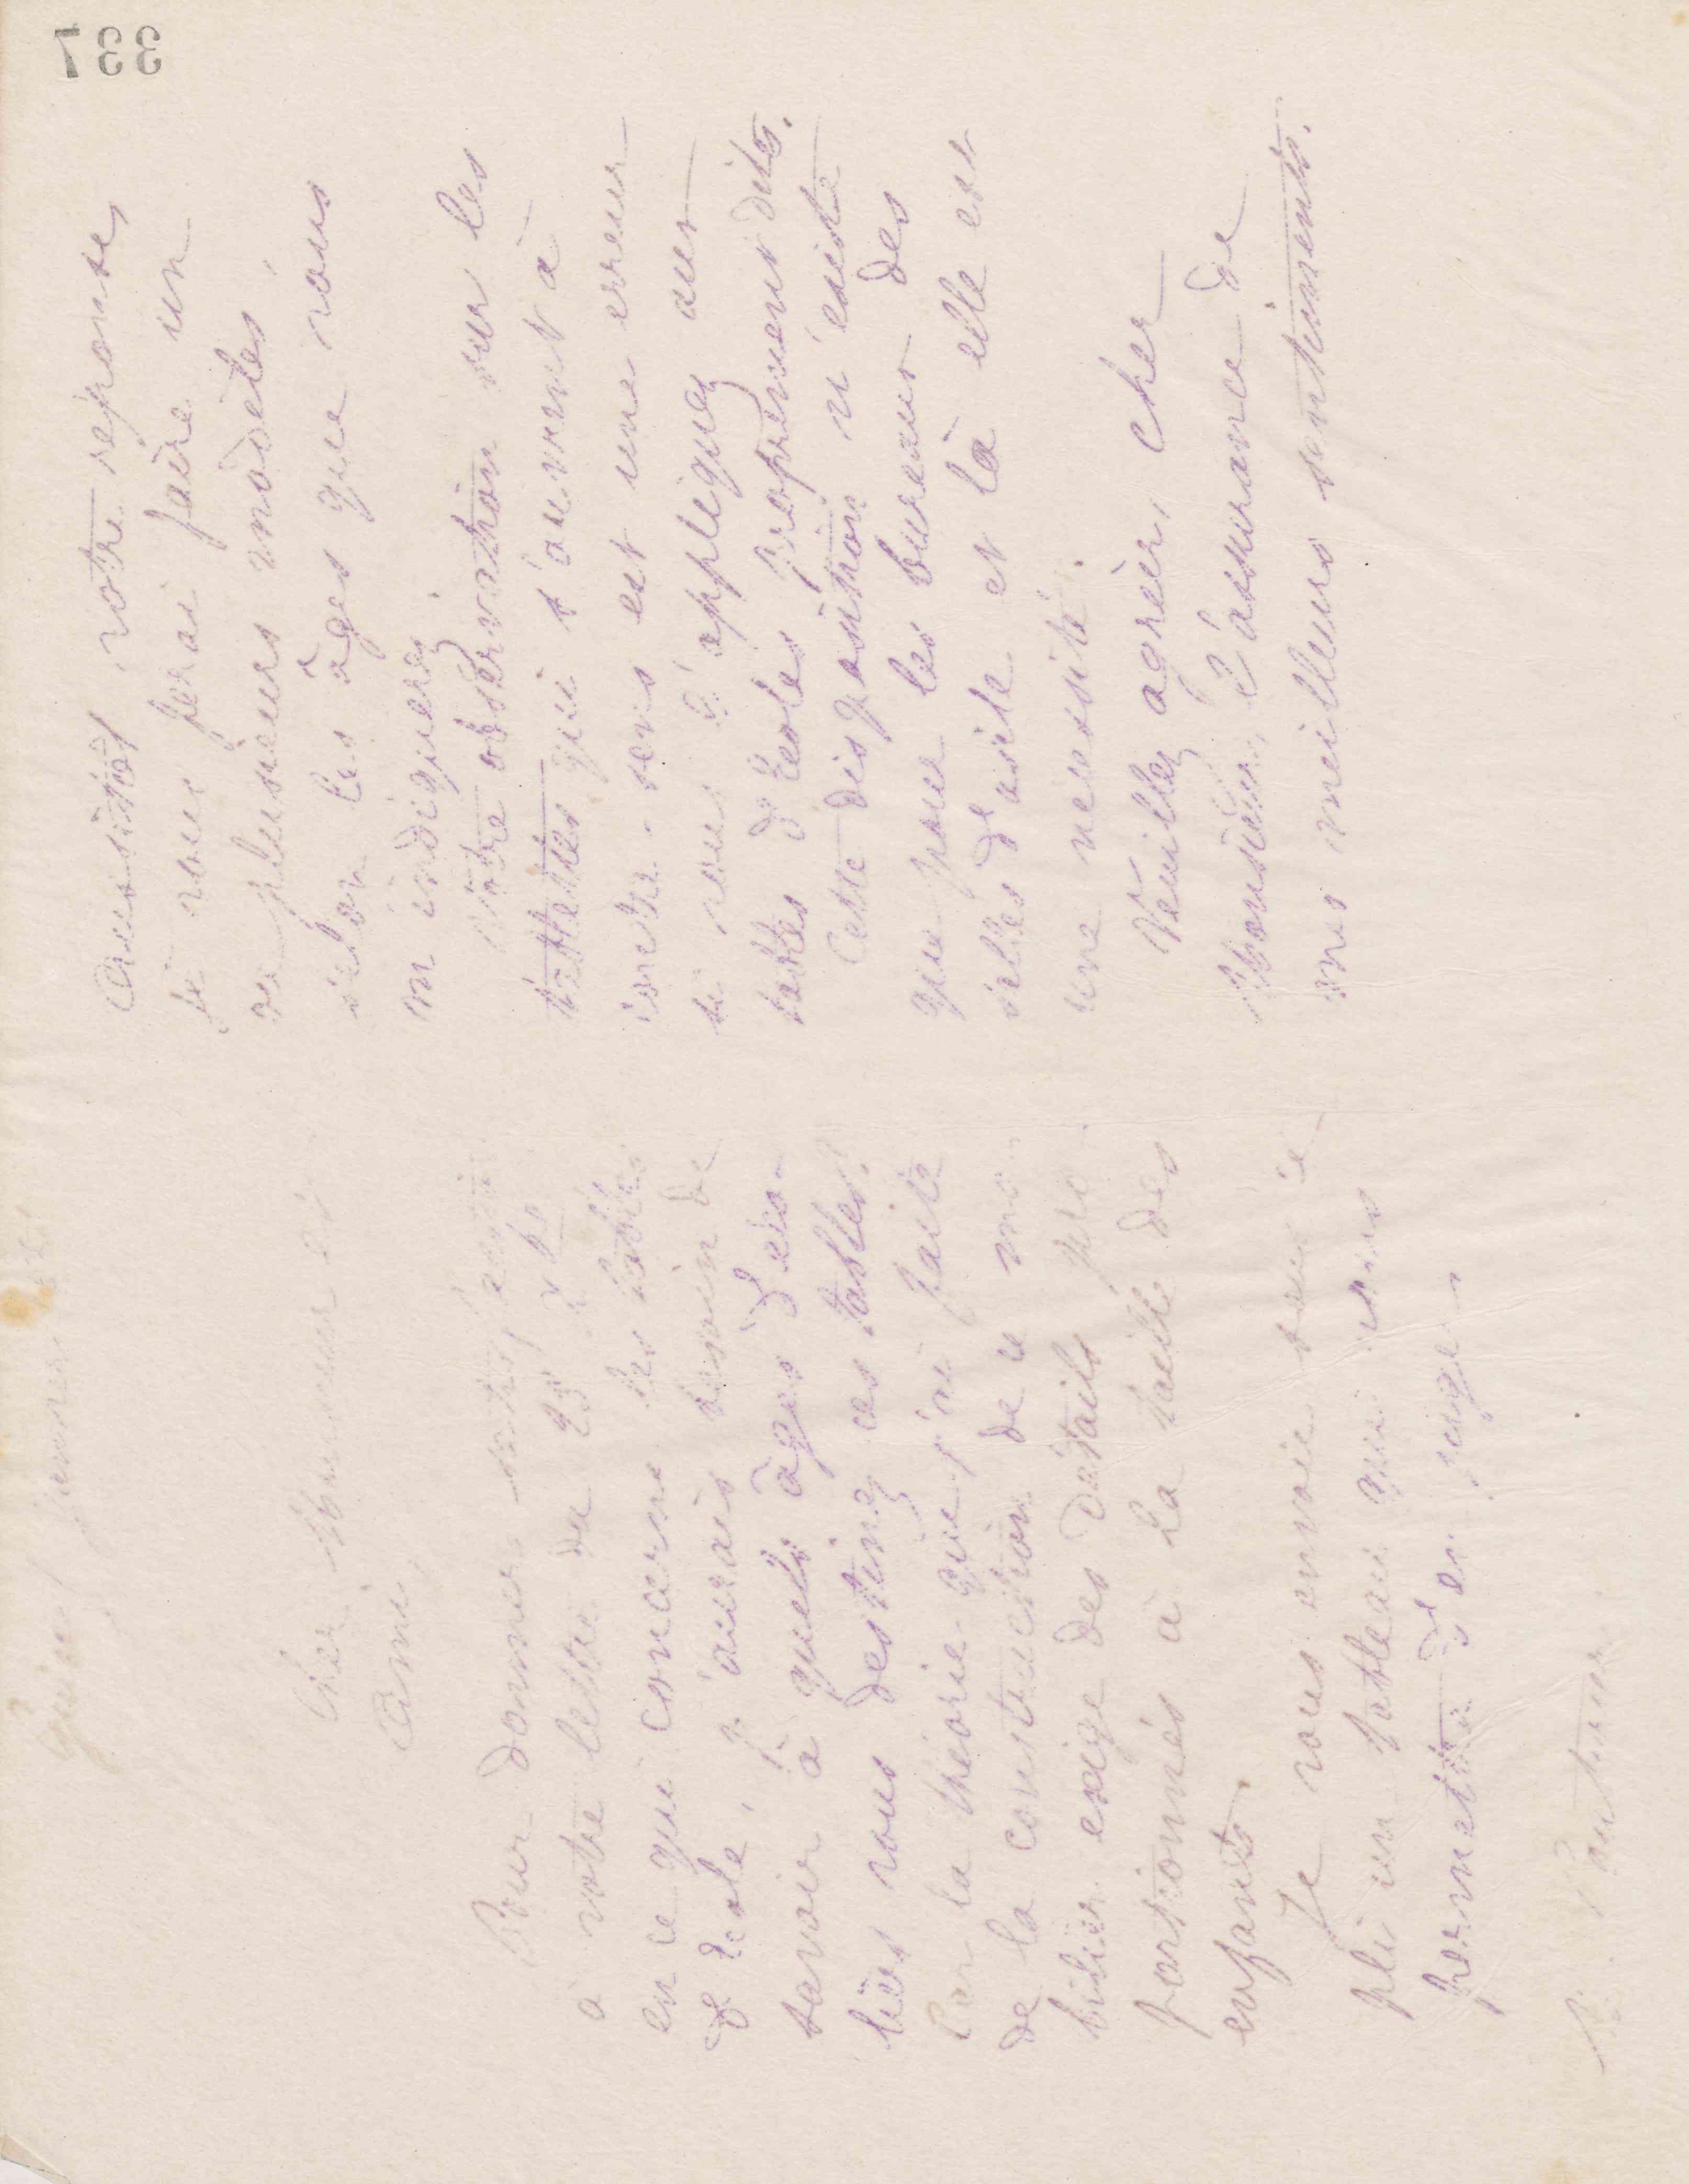 337
Cher Monsieur et
Ami,
Pour donner
à votre lettre du 25
en ce qui concerne les tables
d'école, j'aurais besoin de
savoir à quels âges d'éco-
liers vous destinez ces tables.
Car la théorie que j'ai faite
de la construction de ce mo-
bilier exige des détails pro-
portionnés à la taille des
enfants.
Je vous envoie sous ce
pli un tableau qui vous
permettra d'en juger
Aussitôt votre reponse,
je vous ferai faire un
ou plusieurs modèles,
selon les âges que vous
m'indiquerez.
Votre observation sur les
tablettes qui s'ouvrent à
contre-sens est une erreur
si vous l'appliquez aux
tables d'école proprement dites.
Cette disposition n'existe
que pour les bureaux des
salles d'asile et là elle est
une necessité.
Veuillez agréer, cher
Monsieur, l'assurance de
mes meilleurs sentiments.